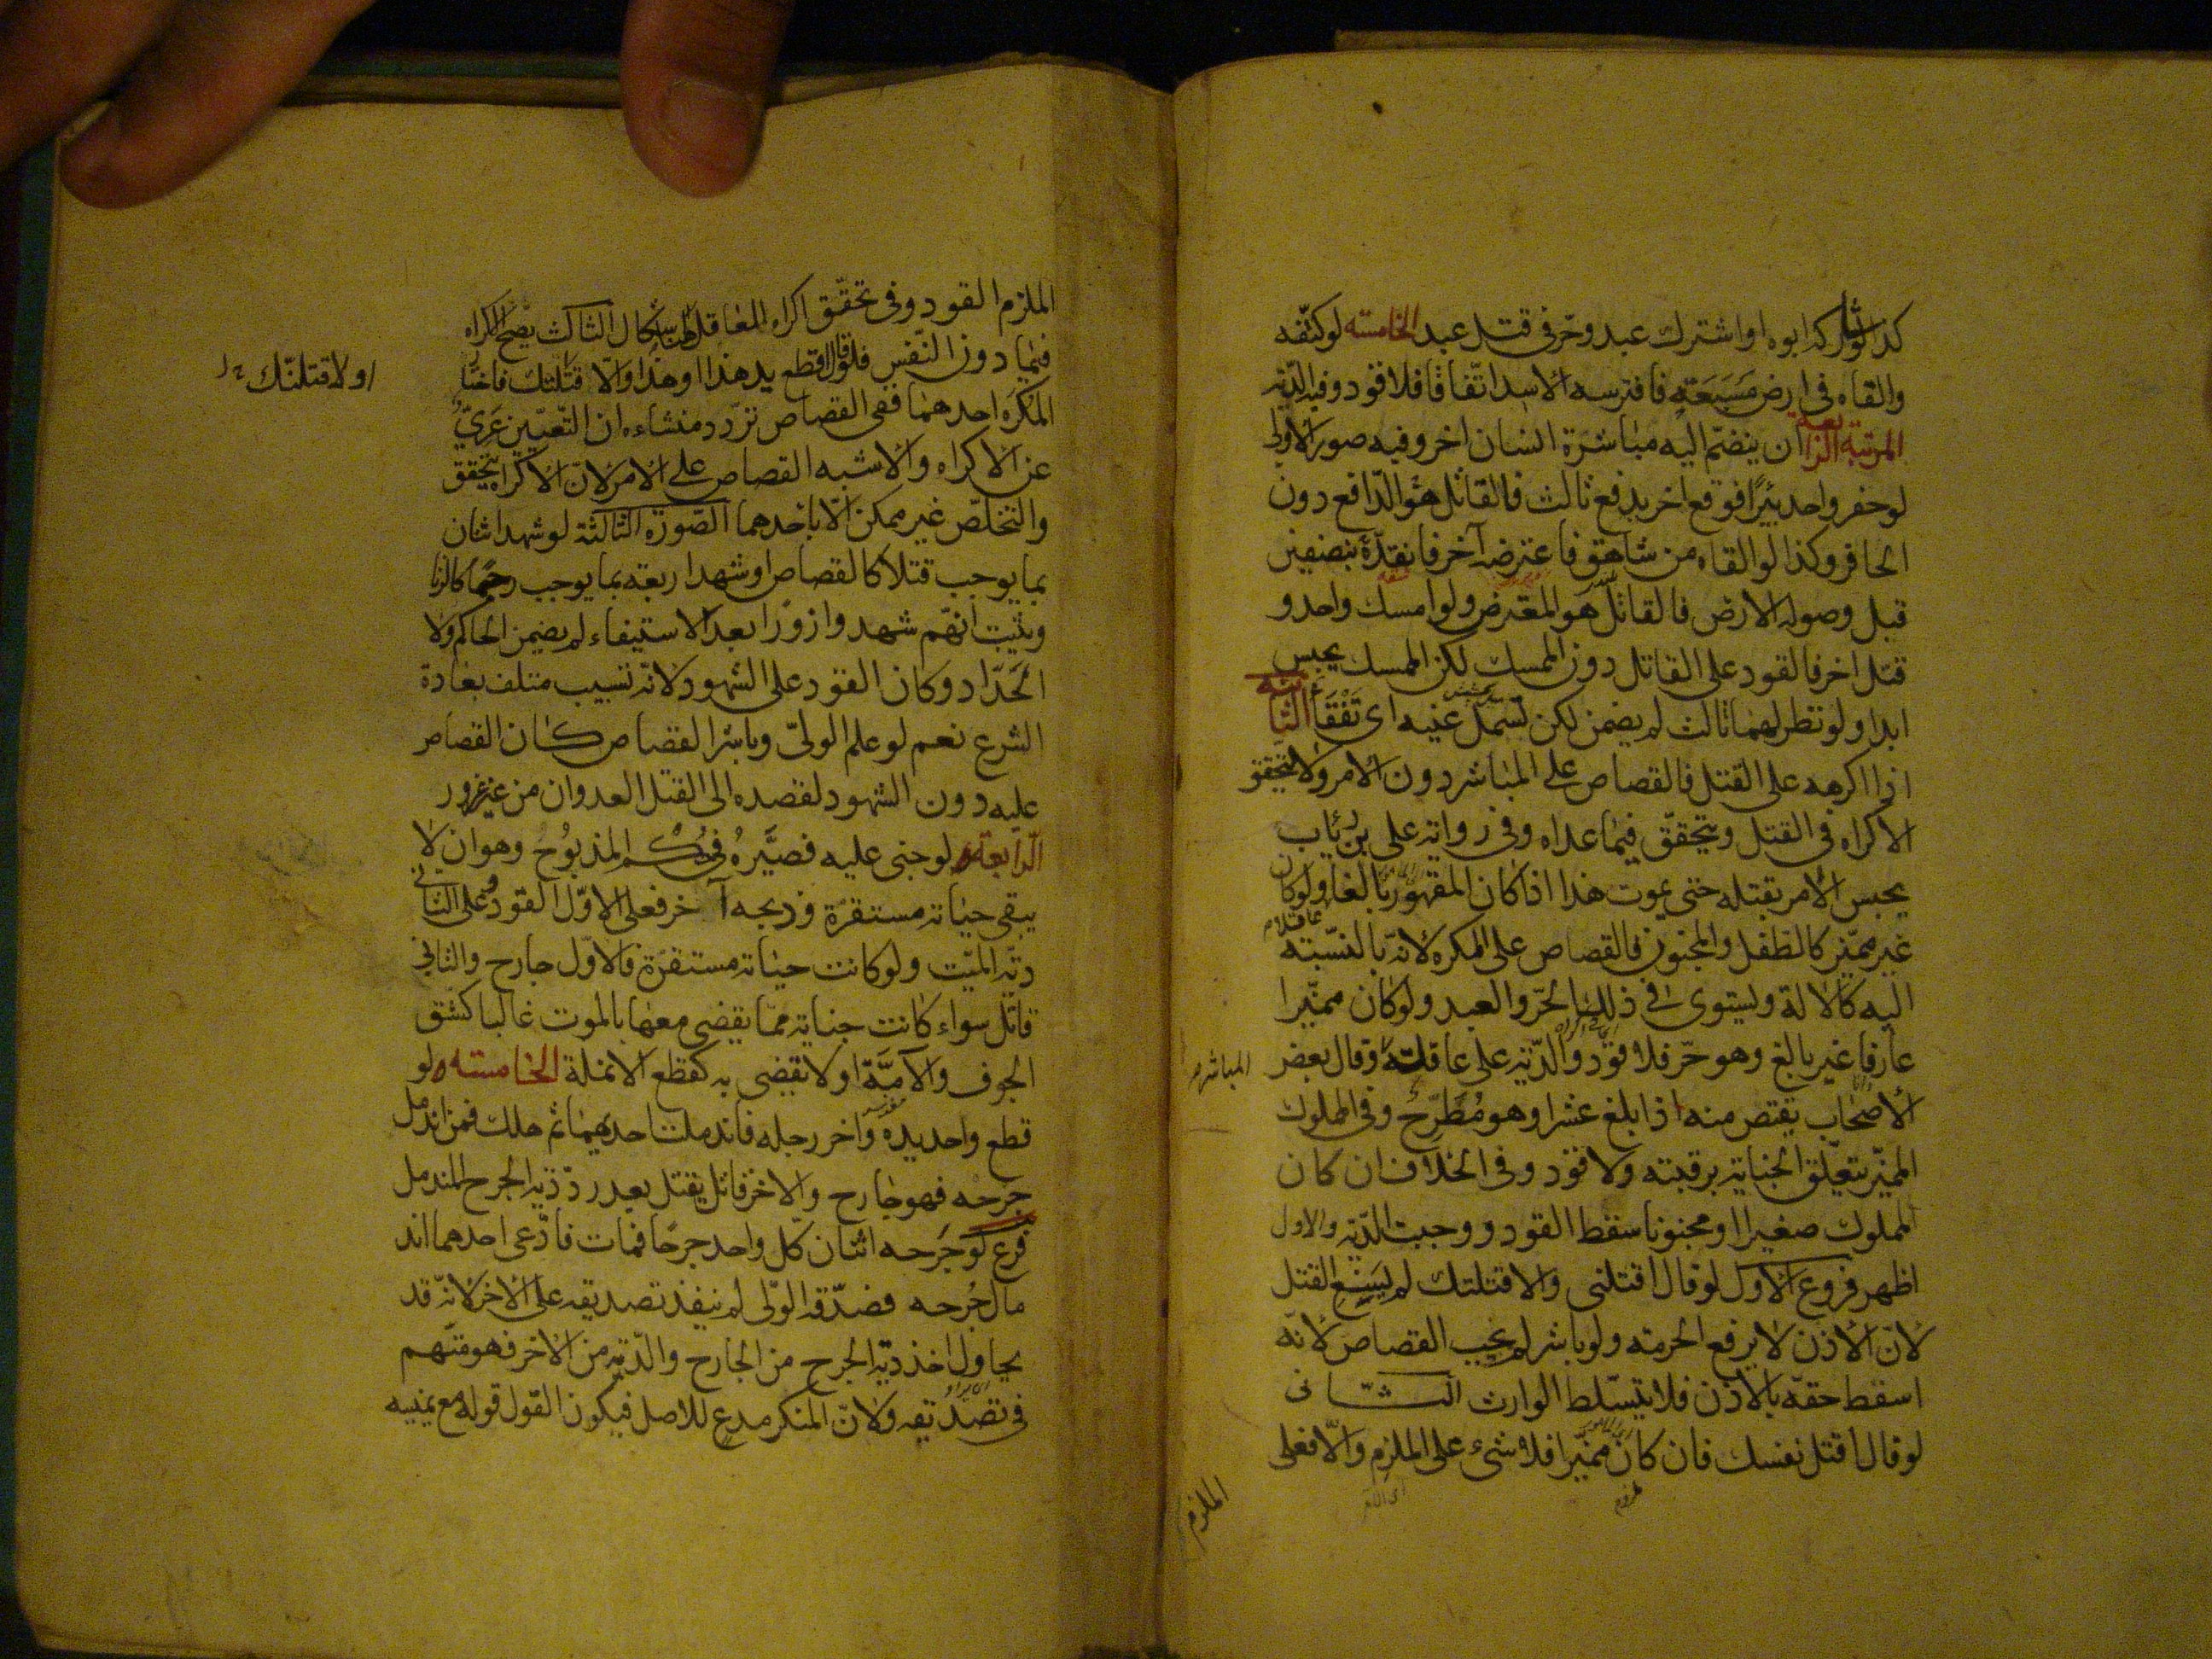 كذا لو شارك ابوه او اشترك عبد وحر فى قتل عبد الخامسة لو كتّفه
والقاه فى ارض مَسْبَعَةٍ فافترسه الاسد اتّفاقا فلا قود وفيه الدّية
المرتبة الرابعة ان ينضمّ اليه مباشرة انسان اخر وفيه صور الاولى
لو حفر واحد بئرًا فوقع اخر بدفع ثالث فالقاتل هو الدّافع دون
الحافر وكذا لو القاه من شاهق فاعترضه آخر فانقدّه بنصفين
قبل وصوله الارض فالقاتل هو المعترض ولو امسك واحد و
قتل اخر فالقود على القاتل دون الممسك لكن الممسك يحبس
ابدا ولو نظر لهما ثالث لم يضمن لكن تسمل عينيه اى تَفْقَأ الثانية
اذا اكرهه على القتل فالقصاص على المباشر دون الآمر ولا يتحقق
الاكراه فى القتل ويتحقّق فيما عداه وفى رواية على بن رئاب
يحبس الآمر بقتله حتى يموت هذا اذا كان المقهور بالغا عاقلا ولو كان
غير مميّز كالطفل والمجنون فالقصاص على المكره لانّه بالنسبة
اليه كالآلة ويستوى فى ذلك الحرّ والعبد ولو كان مميّزا
عارفا غير بالغ وهو حرّ فلا قود والدّية على عاقلة المباشر وقال بعض
الأصحاب يقتص منه اذا بلغ عشرا وهو مُطَّرِحٌ وفى المملوك
المميّز يتعلّق الجناية برقبته ولا قود وفى الخلاف ان كان
المملوك صغيرا او مجنونا سقط القود ووجبت الدّية والاول
اظهر فروع الاول لو قال اقتلنى والا قتلتك لم يَسَغِ القتل
لانّ الاذن لا يرفع الحرمة ولو باشر لم يجب القصاص لانّه
اسقط حقّه بالاذن فلا يتسلّط الوارث الثانى
لو قال اقتل نفسك فان كان مميّزا فلا شىء على الملزم والّا فعلى
الملزم
الملزم القود وفى تحقّق اكراه العاقل هنا اشكال الثالث يصحّ الاكراه
فيما دون النّفس فلو قال اقطع يد هذا او هذا والّا قتلتك فاختار
او لاقتلنّك
المُكرَه احدهما ففى القصاص تردّد منشاءه ان التّعيين عَرِىٌّ
عن الاكراه والاشبه القصاص على الآمر لانّ الاكراه يتحقق
والتخلّص غير ممكن الّا باحدهما الصّورة الثالثة لو شهد اثنان
بما يوجب قتلا كالقصاص او شهد اربعة بما يوجب رجمًا كالزنا
ويثبت انّهم شهدوا زورًا بعد الاستيفاء لم يضمن الحاكم ولا
الحَدّاد وكان القود على الشهود لانّه تسبيب متلف بعادة
الشرع نعم لو علم الولىّ وباشر القصاص كان القصاص
عليه دون الشهود لقصده الى القتل العدوان من غير غرور
الرّابعة لو جنى عليه فصيَّرهُ فى حُكم المذبوح وهو ان لا
يبقى حياته مستقرّة وذبحه آخر فعلى الاوّل القود وعلى الثانى
ديّة الميّت ولو كانت حياته مستقرّة فالاوّل جارح والثانى
قاتل سواء كانت جنايته ممّا يقضى معها بالموت غالبا كشق
الجوف والآمَّة او لا يقضى به كقطع الانملة الخامسة لو
قطع واحد يده وآخر رجله فاندملت احديهما ثم هلك فمن اندمل
جرحه فهو جارح والاخر قاتل يقتل بعد ردّ دية الجرح المندمل
فرع لو جَرحه اثنان كلّ واحد جرحًا فمات فادّعى احدهما اند
مال جُرحه فصدّقه الولى لم ينفذ تصديقه على الاخر لانّه قد
يحاول اخذ دية الجرح من الجارح والدّية من الاخر فهو متّهم
فى تصديقه ولانّ المنكر مدعٍ للاصل فيكون القول قوله مع يمينه